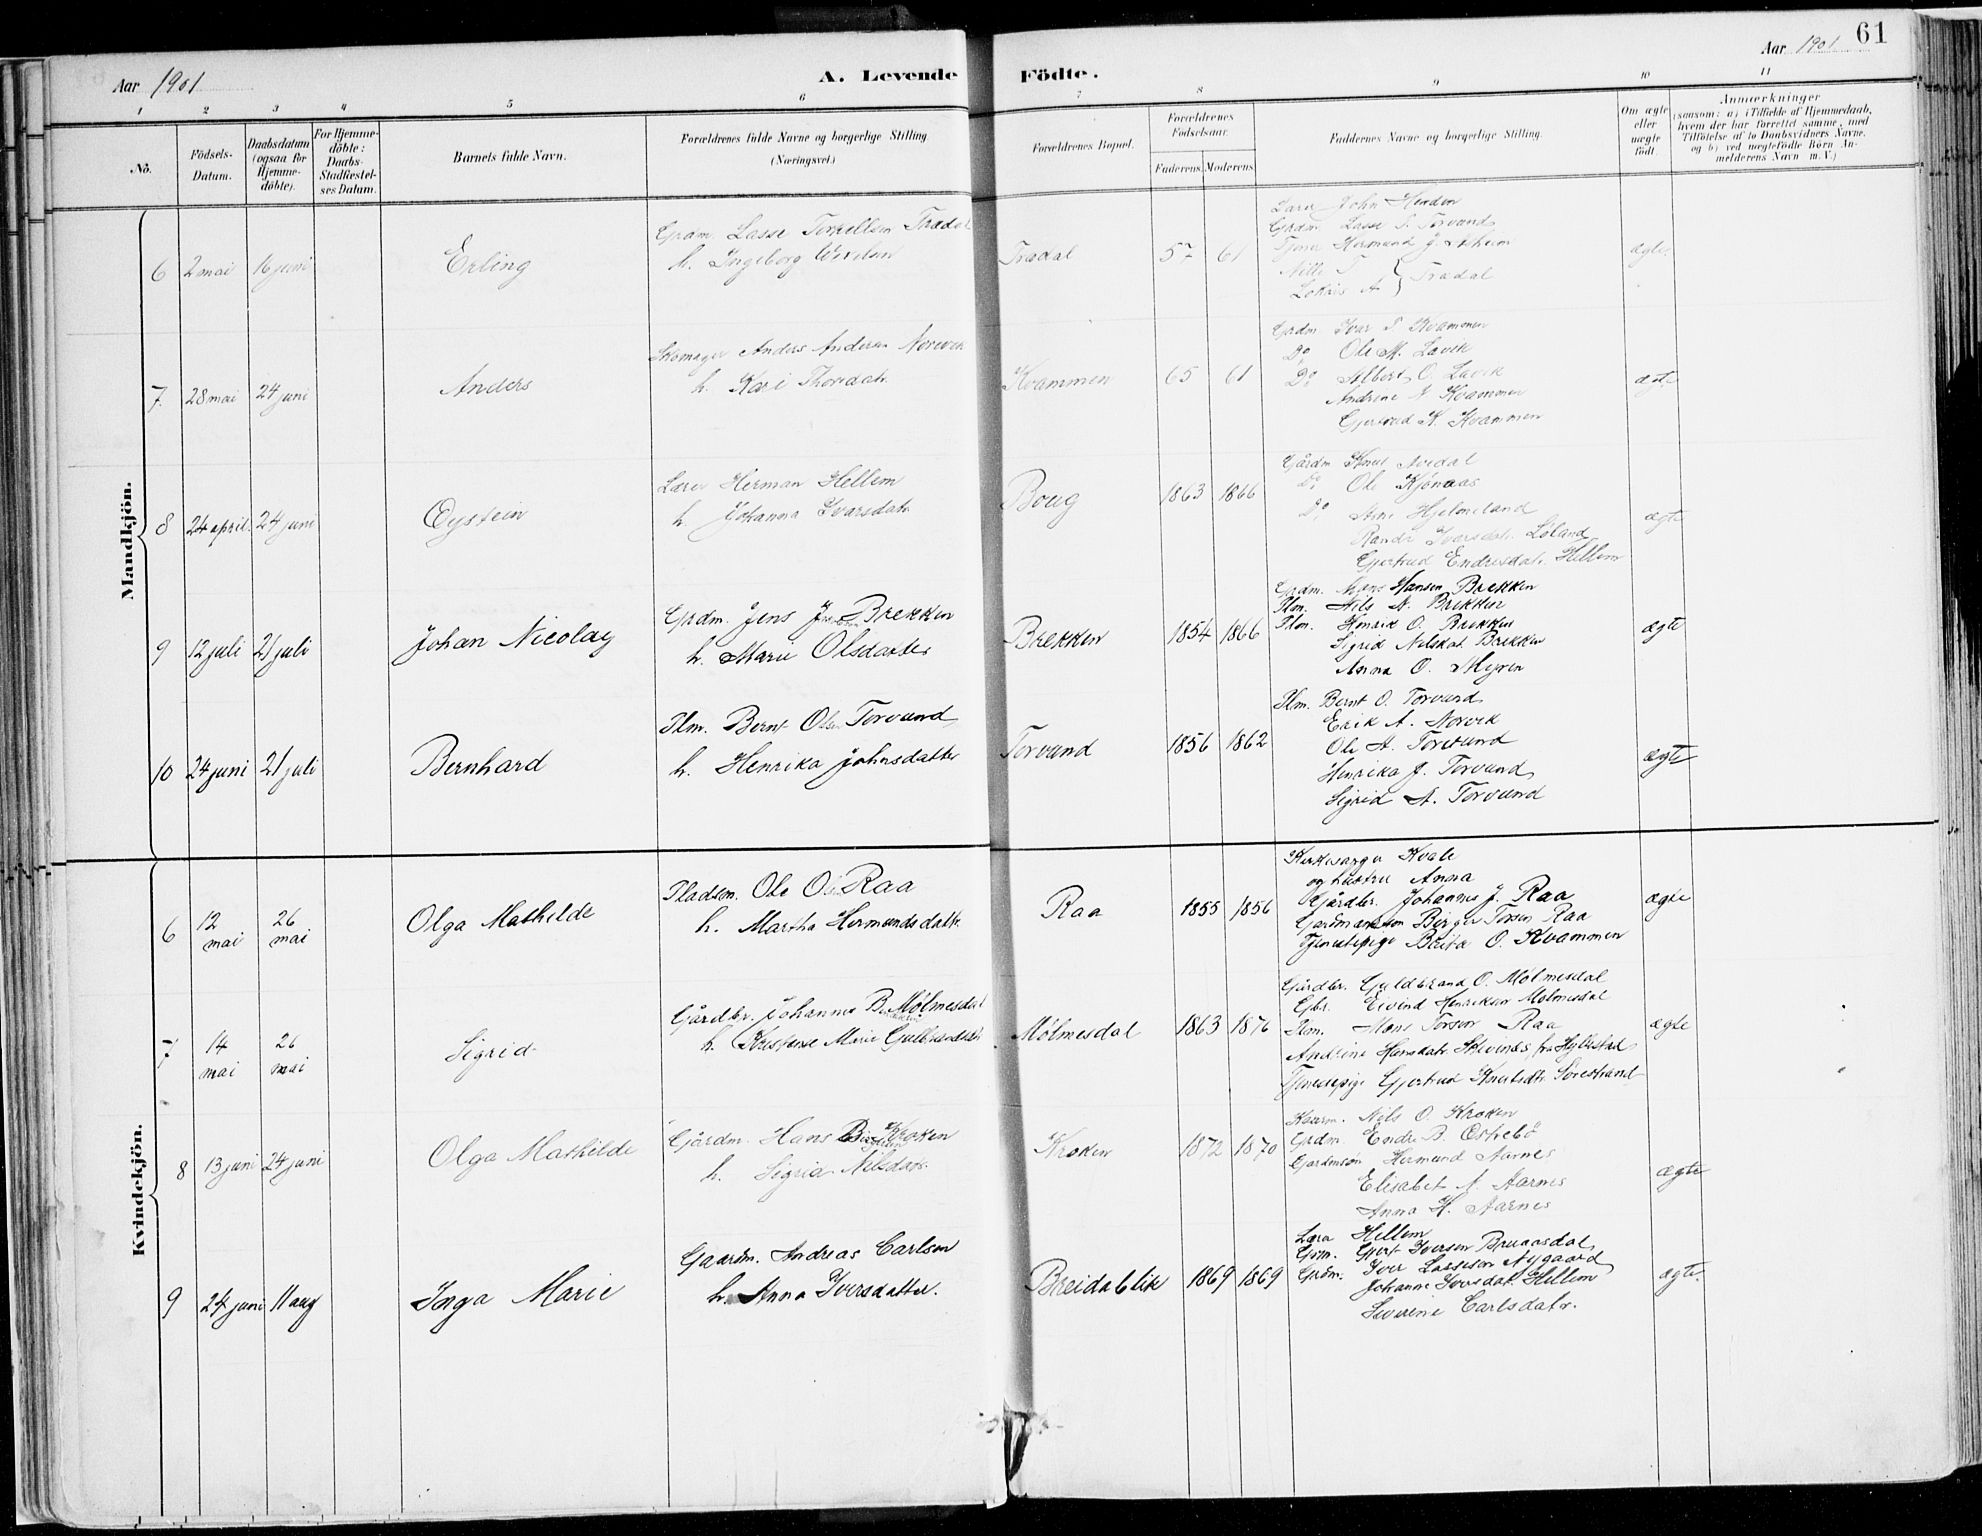 Aar 1901
A. Levende Födte.
Aar 1901
61
1 2 3 4 5 6 7 8 9 10 11
No.
Födsels-Datum.
Daabsdatum (ogsaa for Hjemme-döbte).
For Hjemme-döbte: Daabs-Stadfæstel-ses Datum.
Barnets fulde Navn.
Forældrenes fulde Navne og borgerlige Stilling (Næringsvei.)
Forældrenes Bopæl.
Forældrenes Födselsaar.
Faderens Moderens
Faddernes Navne og borgerlige Stilling.
Om ægte eller uægte födt.
Anmærkninger
(saasom: a) i Tilfælde af Hjemmedaab, hvem der har forrettet samme, med Tilföielse af to Daabsvidners Navne. og b) ved uægtefödte Börn An-melderens Navn m. V.)
Mandkjön.
6 2 mai 16 juni Erling
Grdm Lasse Torkellsen Trædal
h. Ingeborg
Trædal 57 61
Lærer John
Grdm Lasse S. Torvund
Tjener Hermund J.
Trædal
ægte.
7. 28 mai 24 juni Anders
Skomager Anders Andersen Norevik
h. Kari Thorsdatr.
Kvammen 65 61
Grdm Ivar S Kvammen
Do Ole M. Lavik
Do Albert O. Lavik
Andrine N Kvammen
Gjertrud K. Kvammen
ægte
8 24 april. 24 juni Oystein
Lærer Herman Hellem
h. Johanna Ivarsdatr.
Boug 1863 1866
Gårdm Knut Avedal
Do Ole Kjønaas
Do Arne Hjelmeland
Randi Iversdatr. Loland
Gjertrud Endresdatr. Hellem
ægte
9 12 juli 21 juli Johan Nicolay
Grdm. Jens Brekken
h. Marie Olsdatter
Brekken 1854 1866
Grdm. Mons Hansen Brekken
Plm. Nils N. Brekken
Plm. Henrik O. Brekken
Sigrid Nilsdat. Brekken
Anna O. Myren
ægte
10 24 juni 21 juli Bernhard
Plm. Bernt Ols. Torvund
h. Henrika Johnsdatter
Torvund 1856 1862
Plm. Bernt O. Torvund
Erik A. Norvik
Ole A. Torvund
Henrika J. Torvund
Sigrid A. Torvund
ægte
Kvindekjön.
6 12 mai 26 mai Olga Mathilde
Pladsm. Ole Raa
h. Martha Hermundsdatr.
Raa 1855 1856
Kirkesanger Kvale
og hustru Anna
Gårdbr. Johannes J. Raa
Gardmandsøn Birger Torsen Raa
Tjenestepige Brita O. Kvammen
ægte
7 14 mai 26 mai Sigrid
Gårdbr. Johannes B. Mølmesdal
h. Kristense Marie Gulbrandsdatr
Mølmesdal 1863 1876
Gårdbr. Guldbrand O. Mølmesdal
Gbr. Eivind Henriksen Mølmesdal
Plm. Mons Torson Raa
Andrine Hansdatr. Skivenes fra Hyllestad
Tjenestepige Gjertrud Knutsdtr Sørestrand
ægte
8 13 juni 24 juni Olga Mathilde
Gårdm. Hans Kroken
h. Sigrid Nilsdatr.
Kroken 1872 1870
Kaarm. Nils O Kroken
Grdm. Endre B. Østrebø
Gardmsøn Hermund Aarnes
Elisabet A. Aarnes
Anna H. Aarnes
ægte
9 24 juni 11 aug Inga Marie
Gaardm. Andreas Carlsen
h. Anna Iversdatter.
Breidablik 1869 1869
Lærer Hellem
Grdm. Gjert Iversen Bruaasdal
Grdm. Iver Lassesen Nygaard
Johanne Iversdat. Hellem
Severine Carlsdatr.
ægte.